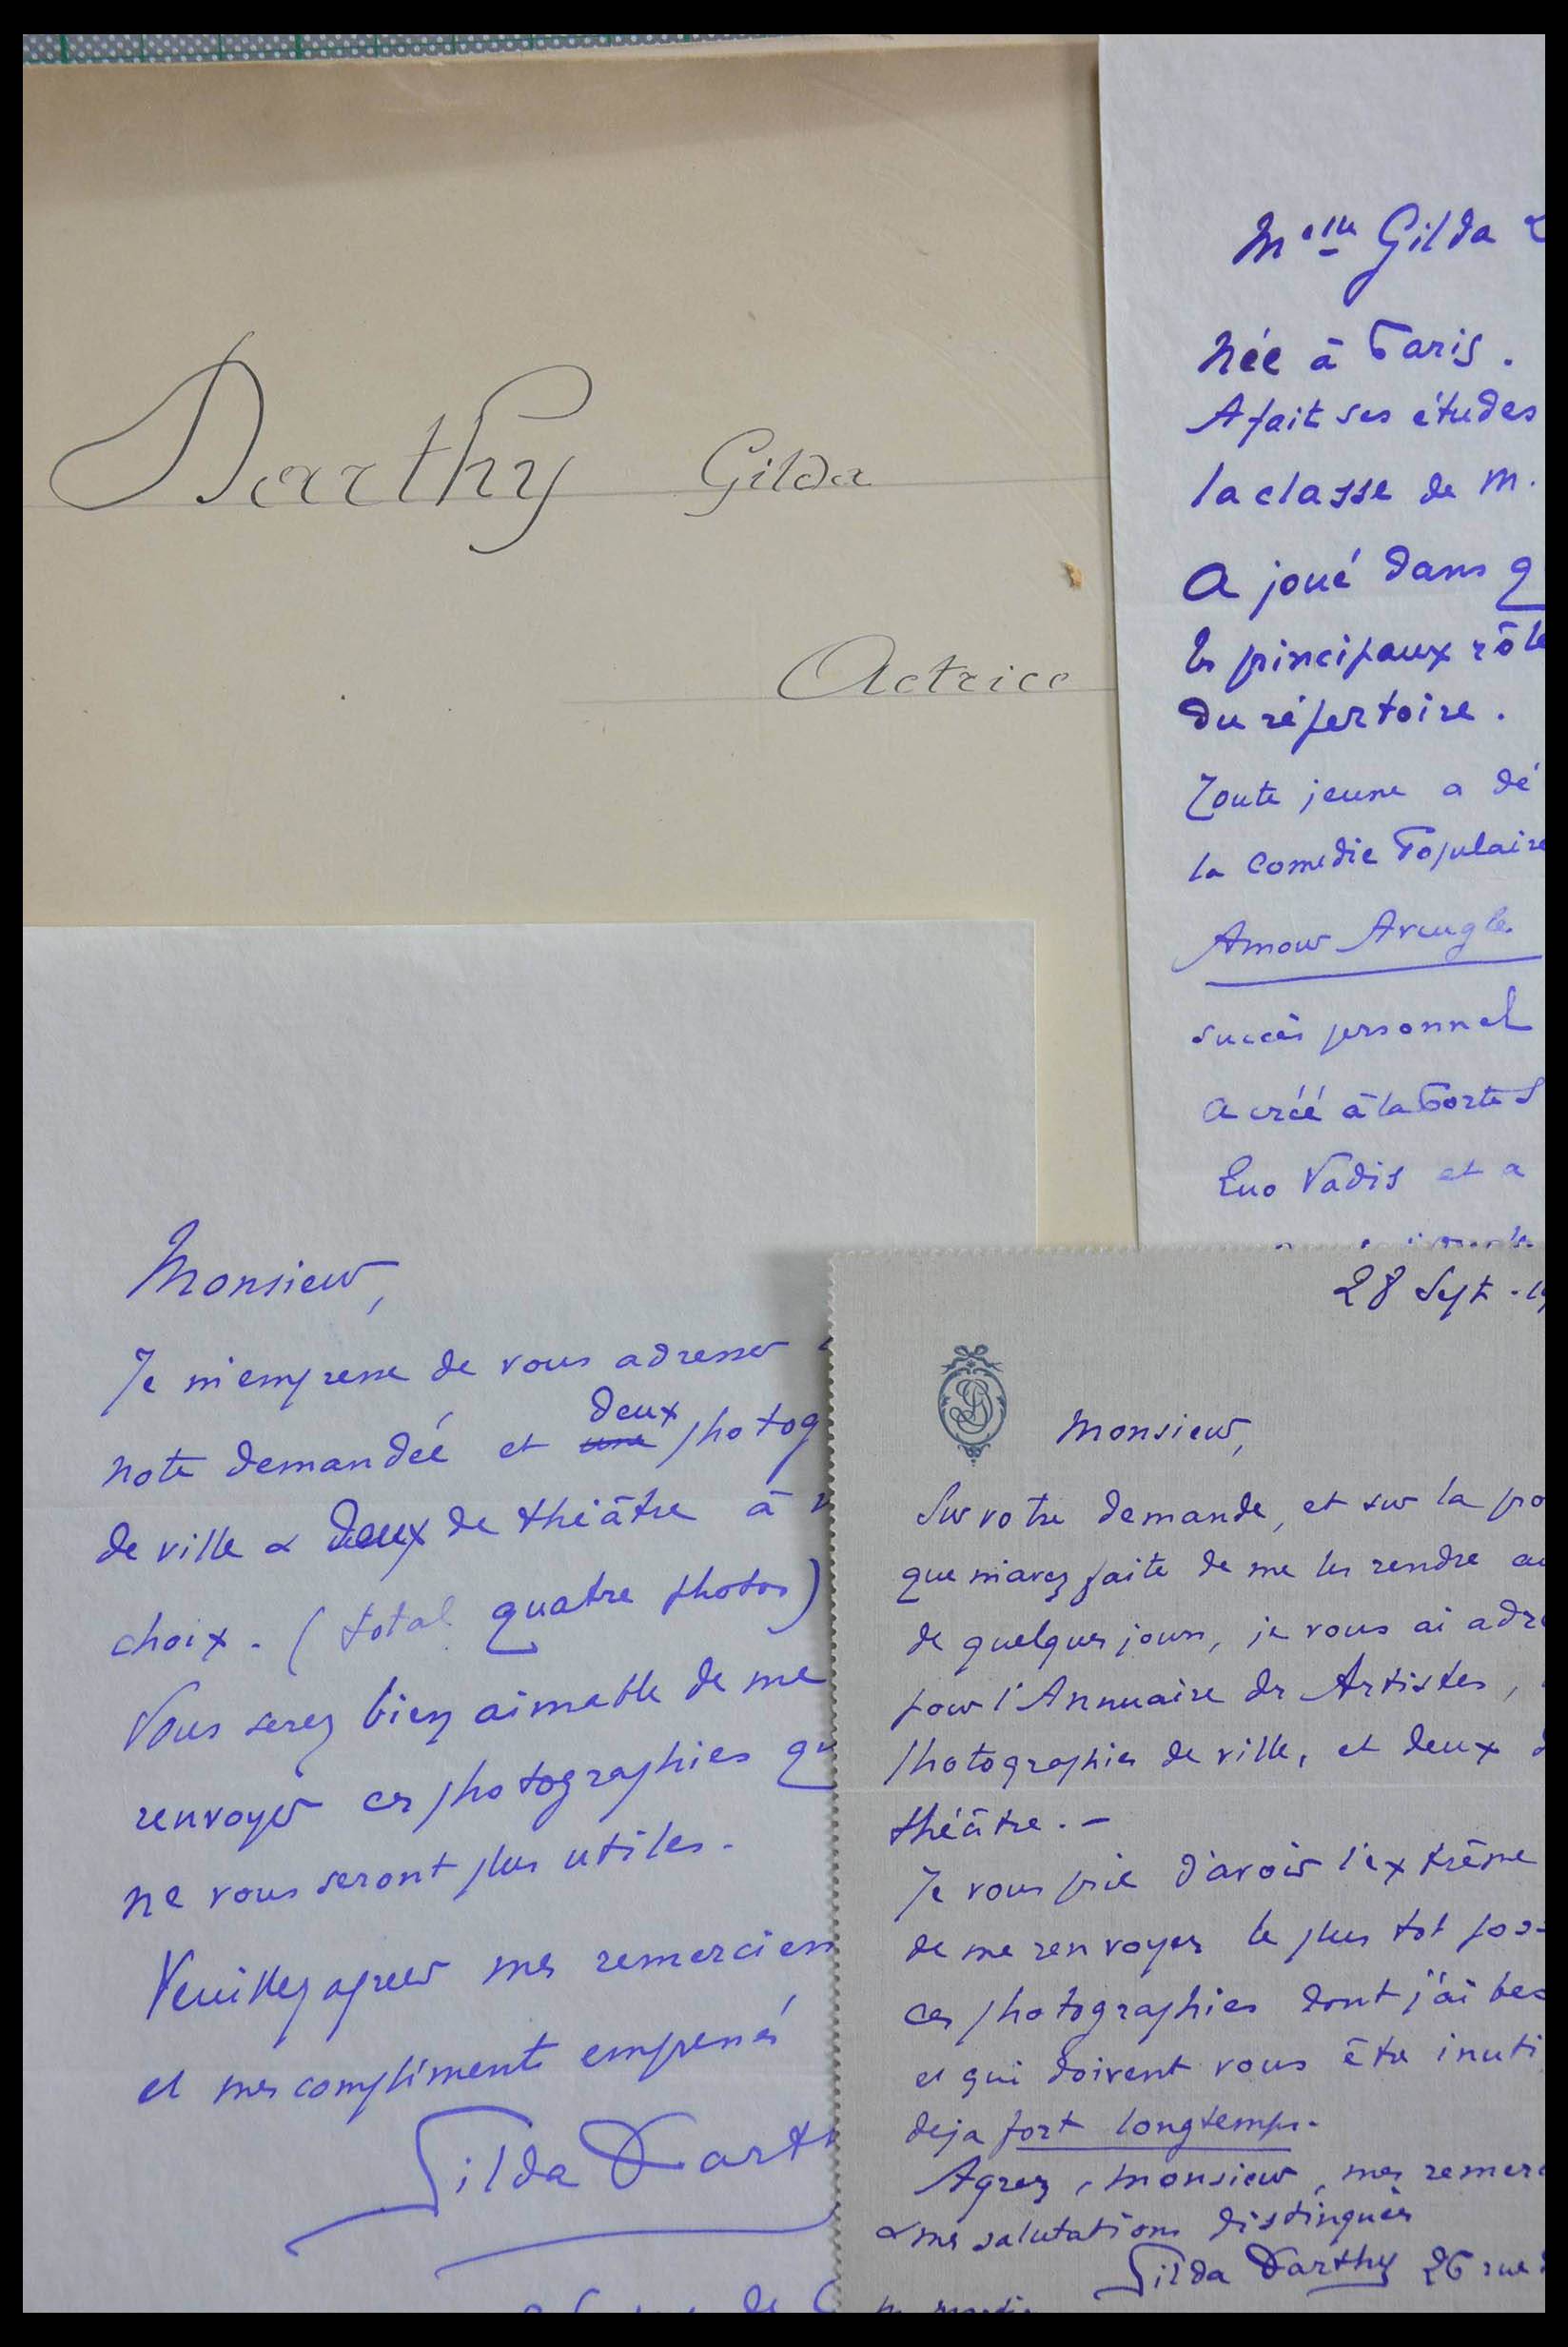 Darthy Gilda
Actrice
Melle Gilda
Née à Paris.
A fait ses études
la classe de M.
A joué dans
les principaux rôle
du répertoire.
Toute jeune a dé
la Comedie Populaire
Amour Aveugle
succès personnel
A créé à la Porte S
Quo Vadis et a
Monsieur,
Je m'empresse de vous adresser
note demandée et une deux photog
de ville & deux de théâtre à
choix. (total quatre photos)
Vous serez bien aimable de me
renvoyer ces photographies qu
ne vous seront plus utiles.
Veuillez agréer mes remerciem
et mes compliments empressés
Gilda Darth
28 Sept. 19
GD
Monsieur,
Sur votre demande, et sur la pro
que m'avez faite de me les rendre au
de quelques jours, je vous ai adre
pour l'Annuaire des Artistes,
photographies de ville, et deux d
théâtre. -
Je vous prie d'avoir l'extrême
de me renvoyer le plus tot pos-
ces photographies dont j'ai bes
et qui doivent vous être inuti
deja fort longtemps.
Agréez, Monsieur, mes remerc
& mes salutations distinguées
Gilda Darthy 26 rue